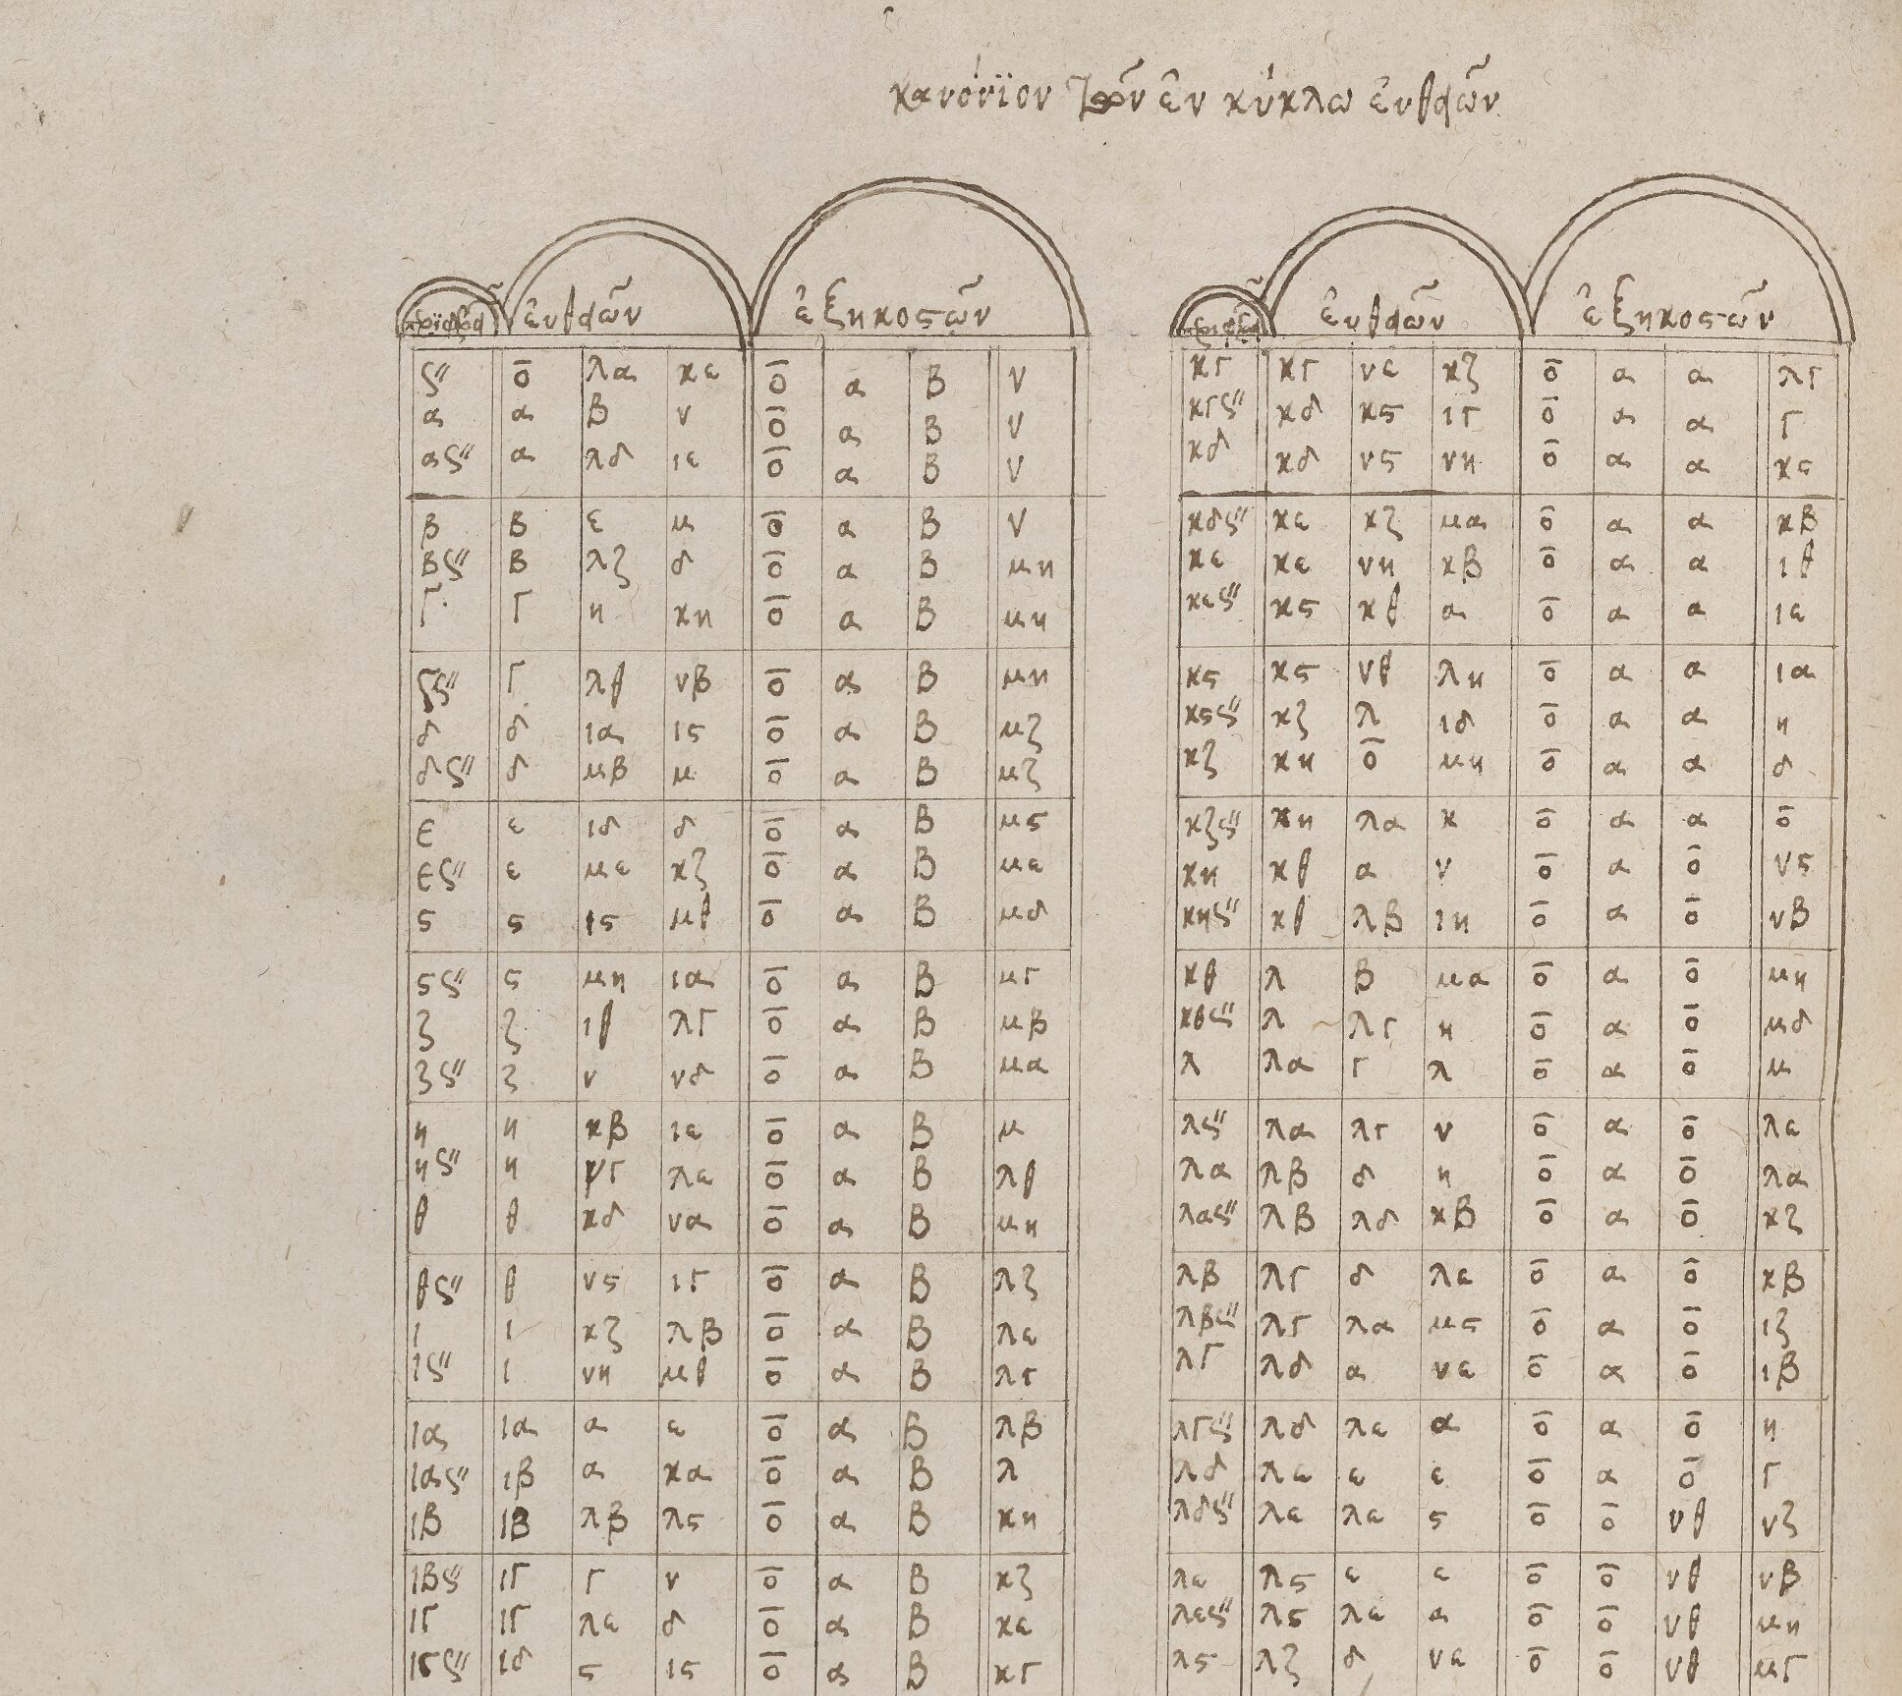 κανόνϊον τῶν ἐν κύκλω ἐυθειῶν
περιφερειῶν ἐυθειῶν ἑξηκοστῶν
ς″ ο̄ λα κε ο̄ α β ν
α α β ν ο̄ α β ν
ας″ α λδ ιε ο̄ α β ν
β β ε μ ο̄ α β ν
βς″ β λζ δ ο̄ α β μη
Γ Γ η κη ο̄ α β μη
Γς″ Γ λθ νβ ο̄ α β μη
δ δ ια ιϛ ο̄ α β μζ
δς″ δ μβ μ ο̄ α β μζ
ε ε ιδ δ ο̄ α β μϛ
ες″ ε με κζ ο̄ α β με
ϛ ϛ ιϛ μθ ο̄ α β μδ
ϛς″ ϛ μη ια ο̄ α β μγ
ζ ζ ιθ λγ ο̄ α β μβ
ζς″ ζ ν νδ ο̄ α β μα
η η κβ ιε ο̄ α β μ
ης″ η νγ λε ο̄ α β λθ
θ θ κδ να ο̄ α β μη
θς″ θ νϛ ιγ ο̄ α β λζ
ι ι κζ λβ ο̄ α β λε
ις″ ι νη μθ ο̄ α β λγ
ια ια α ε ο̄ α β λβ
ιας″ ιβ α κα ο̄ α β λ
ιβ ιβ λβ λϛ ο̄ α β κη
ιβς″ ιγ γ ν ο̄ α β κζ
ιγ ιγ λε δ ο̄ α β κε
ιγς″ ιδ ϛ ιϛ ο̄ α β κγ
περιφερειῶν ἐυθειῶν ἑξηκοστῶν
κγ κγ νε κζ ο̄ α α λγ
κγς″ κδ κϛ ιγ ο̄ α α γ
κδ κδ νϛ νη ο̄ α α κϛ
κδς″ κε κζ μα ο̄ α α κβ
κε κε νη κβ ο̄ α α ιθ
κες″ κϛ κθ α ο̄ α α ιε
κϛ κϛ νθ λη ο̄ α α ια
κϛς″ κζ λ ιδ ο̄ α α η
κζ κη ο̄ μη ο̄ α α δ
κζς″ κη λα κ ο̄ α α ο̄
κη κθ α ν ο̄ α ο̄ νϛ
κης″ κθ λβ ιη ο̄ α ο̄ νβ
κθ λ β μα ο̄ α ο̄ μη
κθς″ λ λγ η ο̄ α ο̄ μδ
λ λα γ λ ο̄ α ο̄ μ
λς″ λα λγ ν ο̄ α ο̄ λε
λα λβ δ η ο̄ α ο̄ λα
λας″ λβ λδ κβ ο̄ α ο̄ κζ
λβ λγ δ λε ο̄ α ο̄ κβ
λβς″ λγ λα μϛ ο̄ α ο̄ ιζ
λγ λδ α νε ο̄ α ο̄ ιβ
λγς″ λδ λε α ο̄ α ο̄ η
λδ λε ε ε ο̄ α ο̄ γ
λδς″ λε λε ϛ ο̄ ο̄ νθ νζ
λε λϛ ε ε ο̄ ο̄ νθ νβ
λες″ λϛ λε α ο̄ ο̄ νθ μη
λϛ λζ δ νε ο̄ ο̄ νθ μγ